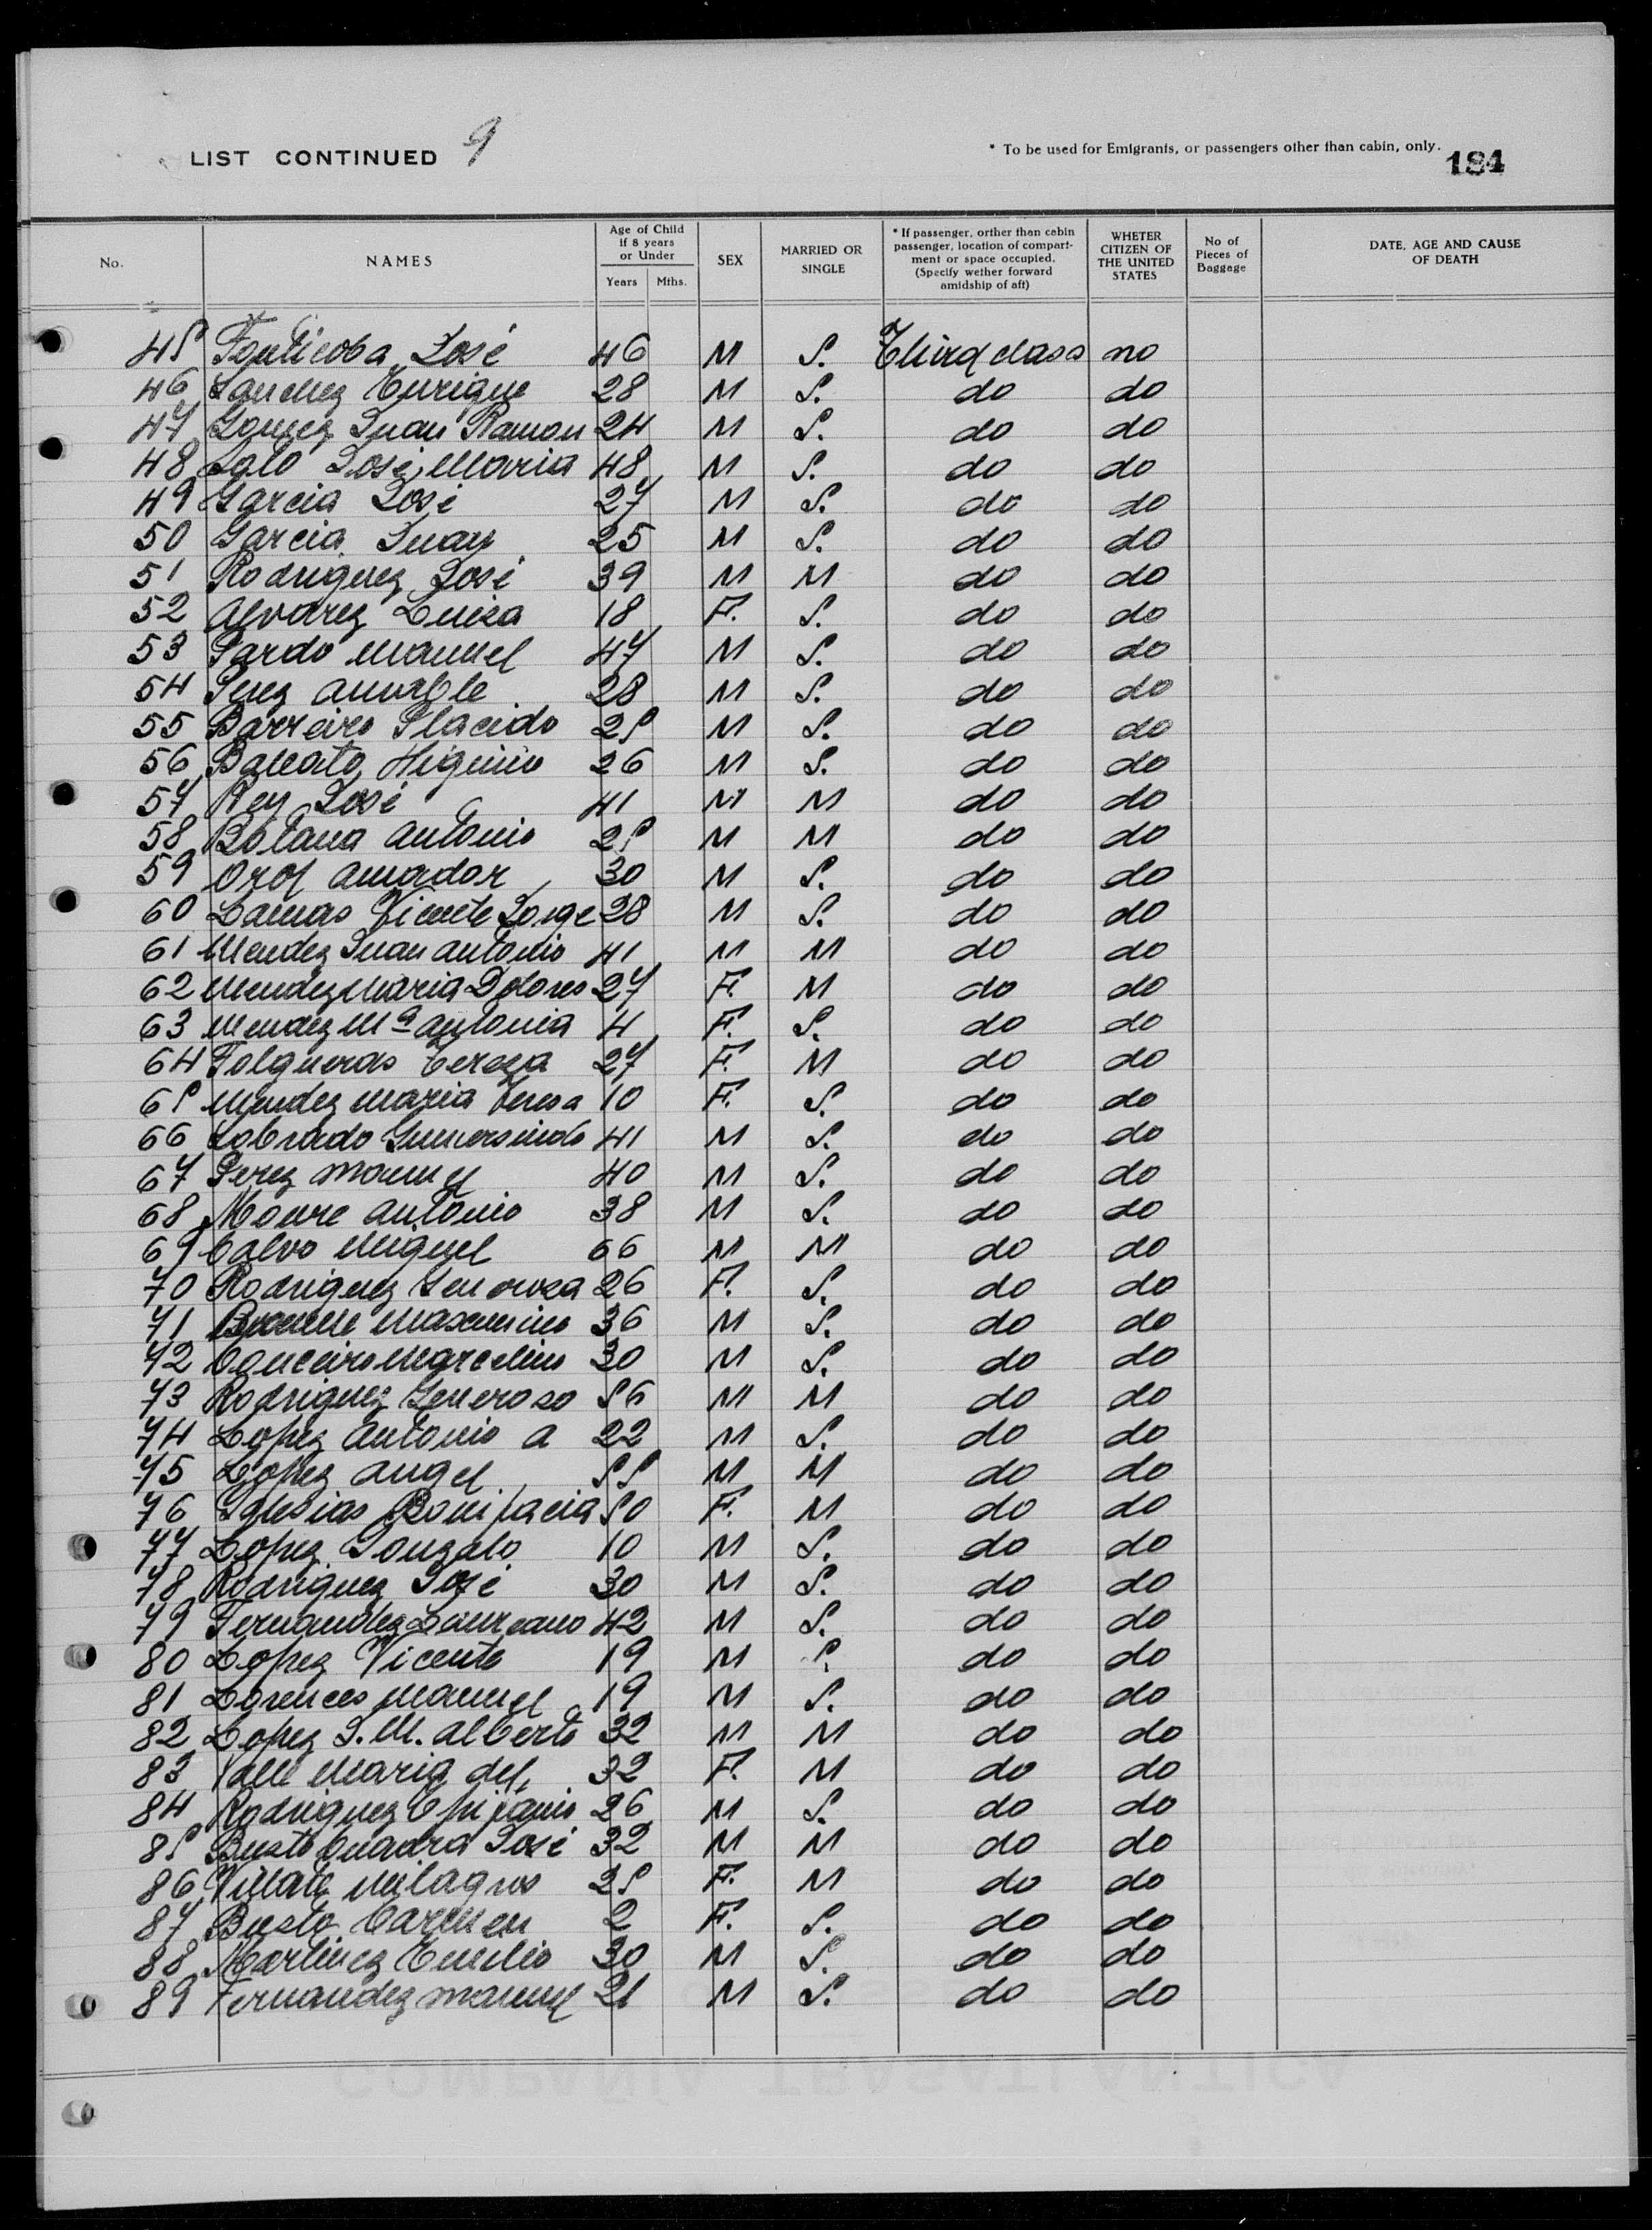 LIST CONTINUED 9
* To be used for Emigrants, or passengers other than cabin, only.
184
No.
NAMES
Age of Child
if 8 years
or Under
Years Mths.
SEX
MARRIED OR
SINGLE
* If passenger, orther than cabin
passenger, location of compart-
ment or space occupied.
(Specify wether forward
amidship of aft)
WHETER
CITIZEN OF
THE UNITED
STATES
No of
Pieces of
Baggage
DATE, AGE AND CAUSE
OF DEATH
45 Fonticoba José 46 M S. Third class no
46 Sanchez Enrique 28 M S. do do
47 Gomez Juan Ramon 24 M S. do do
48 José Maria 48 M S. do do
49 Garcia José 27 M S. do do
50 Garcia Juan 25 M S. do do
51 Rodriguez José 39 M M do do
52 Alvarez Luisa 18 F. S. do do
53 Pardo Manuel 47 M S. do do
54 Perez Amable 28 M S. do do
55 Barreiro Placido 25 M S. do do
56 Baleato Higinio 26 M S. do do
57 Rey José 41 M M do do
58 Botana Antonio 25 M M do do
59 Orol Amador 30 M S. do do
60 Lamas Vicente Jorge 28 M S. do do
61 Mendez Juan Antonio 41 M M do do
62 Mendez Maria Dolores 27 F. M do do
63 Mendez Mª Antonia 4 F. S. do do
64 Folgueras Tereza 27 F. M do do
65 Mendez Maria Teresa 10 F. S. do do
66 Sobrado Gumersindo 41 M S. do do
67 Perez Manuel 40 M S. do do
68 Moure Antonio 38 M S. do do
69 Calvo Miguel 66 M M do do
70 Rodriguez Generosa 26 F. S. do do
71 Maximino 36 M S. do do
72 Couceiro Marcelino 30 M S. do do
73 Rodriguez Generoso 56 M M do do
74 Lopez Antonio A 22 M S. do do
75 Lopez Angel 55 M M do do
76 Iglesias Bonifacia 50 F. M do do
77 Lopez Gonzalo 10 M S. do do
78 Rodriguez José 30 M S. do do
79 Fernandez Laureano 42 M S. do do
80 Lopez Vicente 19 M S. do do
81 Lorences Manuel 19 M S. do do
82 Lopez J. M. Alberto 32 M M do do
83 Valle Maria del 32 F. M do do
84 Rodriguez Epifanio 26 M S. do do
85 Busto Cuadra José 32 M M do do
86 Villate Milagros 25 F. M do do
87 Busto Carmen 2 F. S. do do
88 Martinez Emilio 30 M S. do do
89 Fernandez Manuel 21 M S. do do
COMPAÑIA TRASATLANTICA